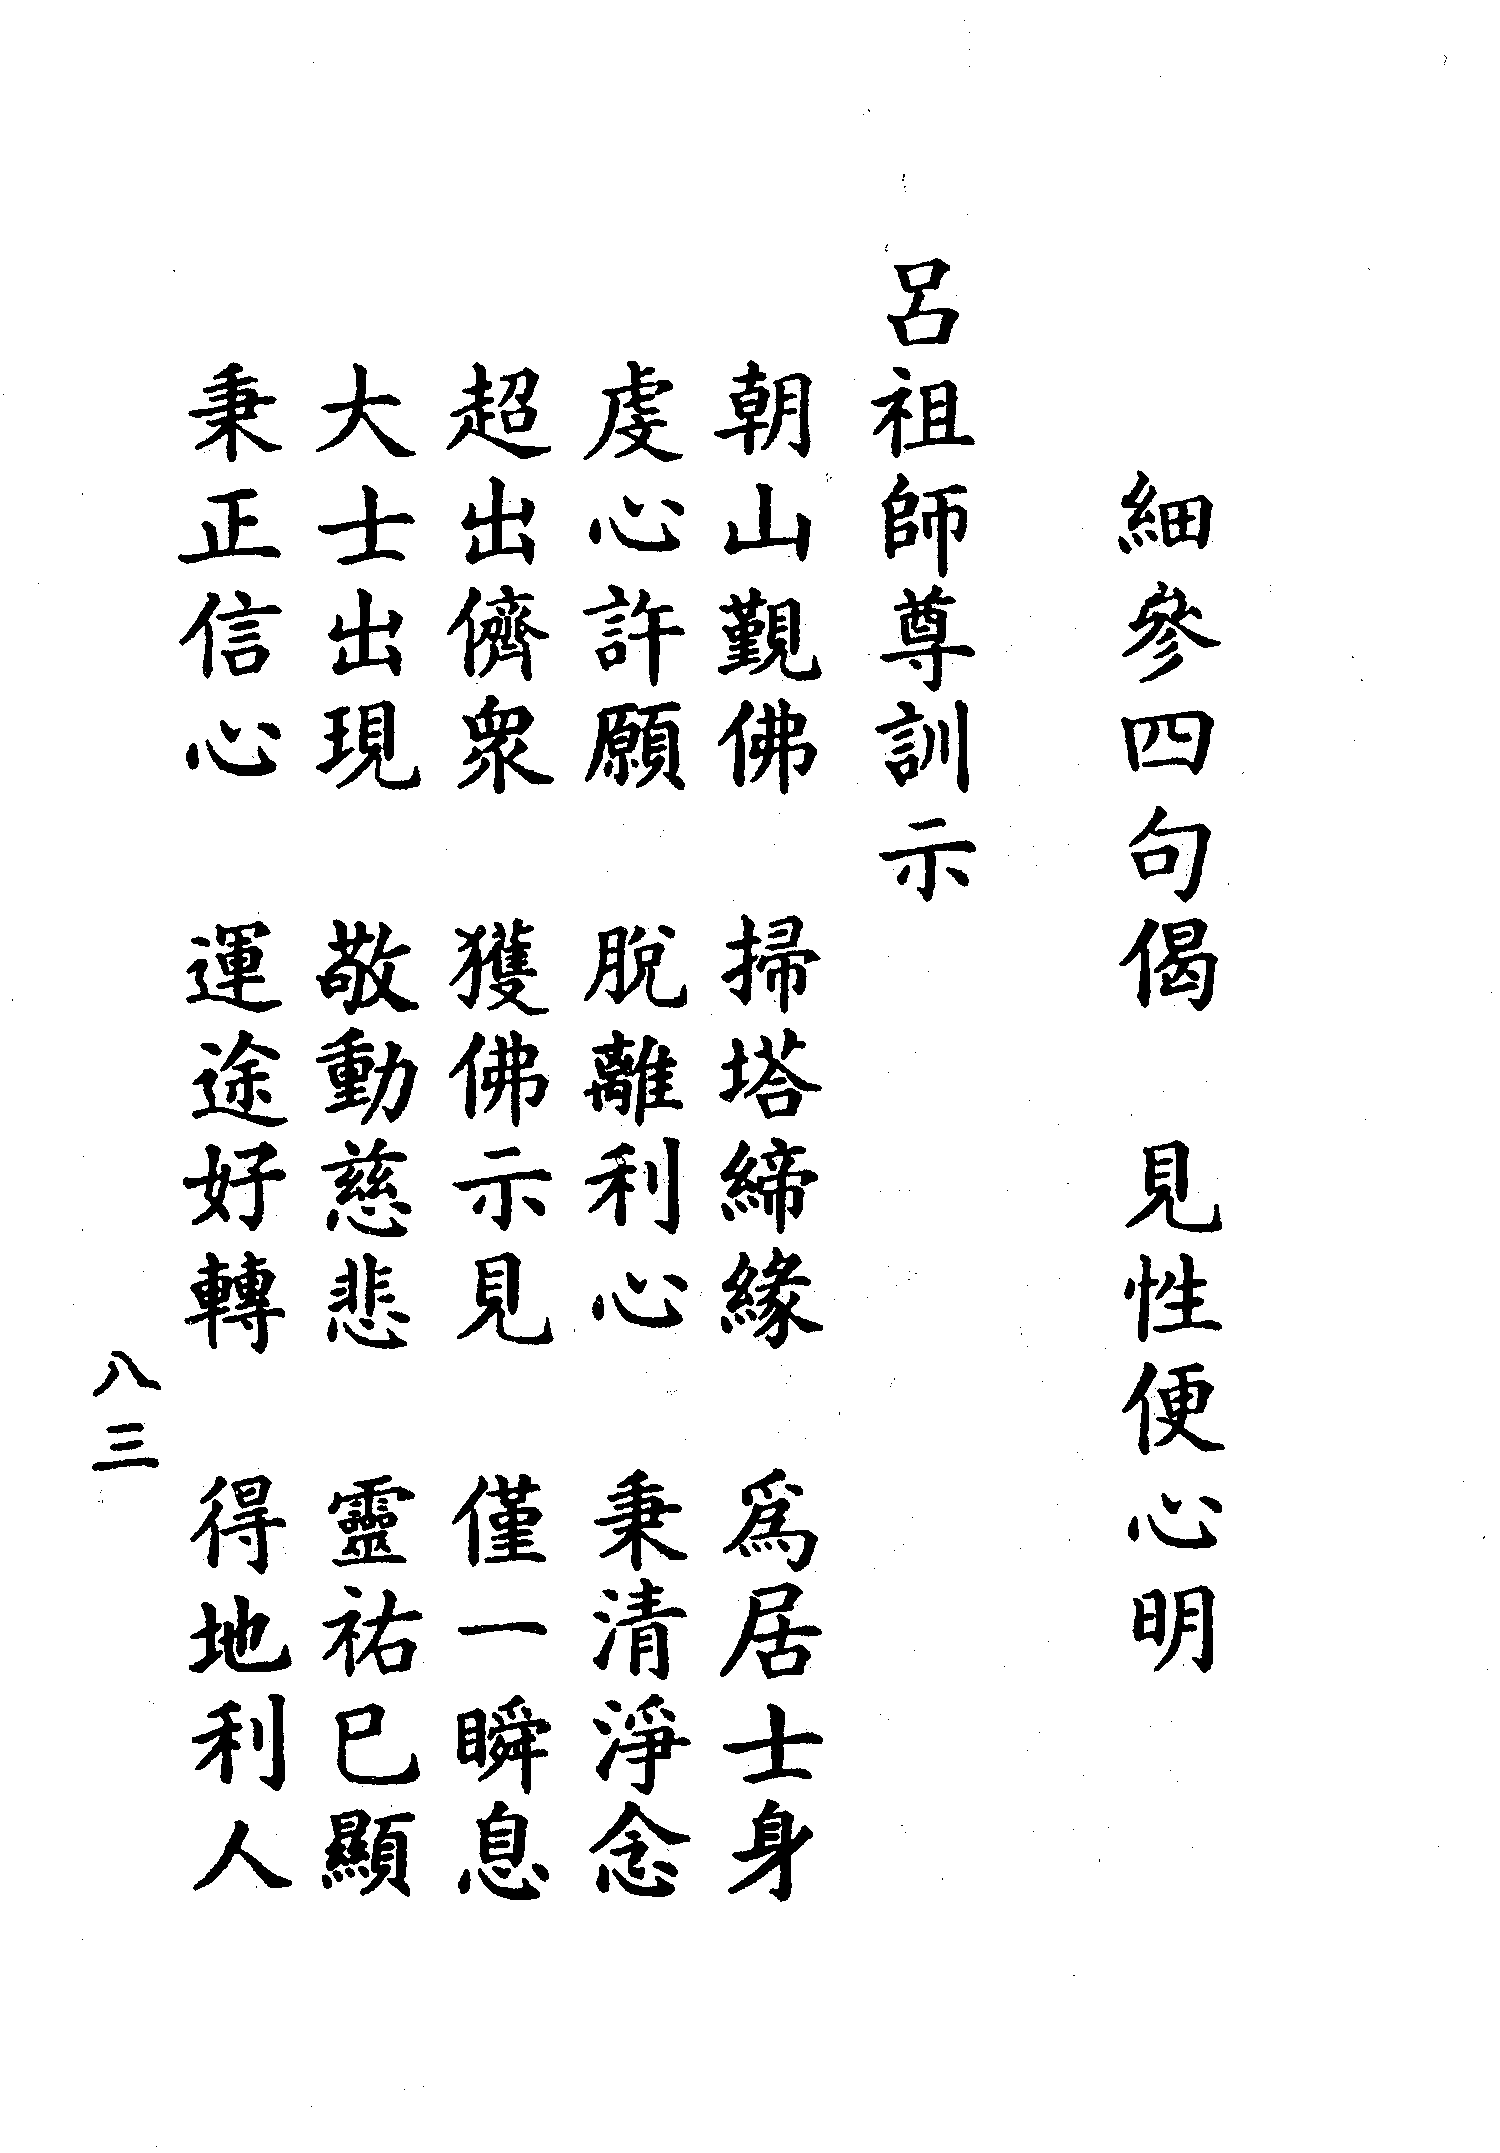 細參四句偈　見性便心明
呂祖師尊訓示
朝山覲佛　掃塔締緣　為居士身
虔心許願　脫離利心　秉清淨念
超出儕眾　獲佛示見　僅一瞬息
大士出現　敬動慈悲　靈祐已顯
秉正信心　運途好轉　得地利人
八三